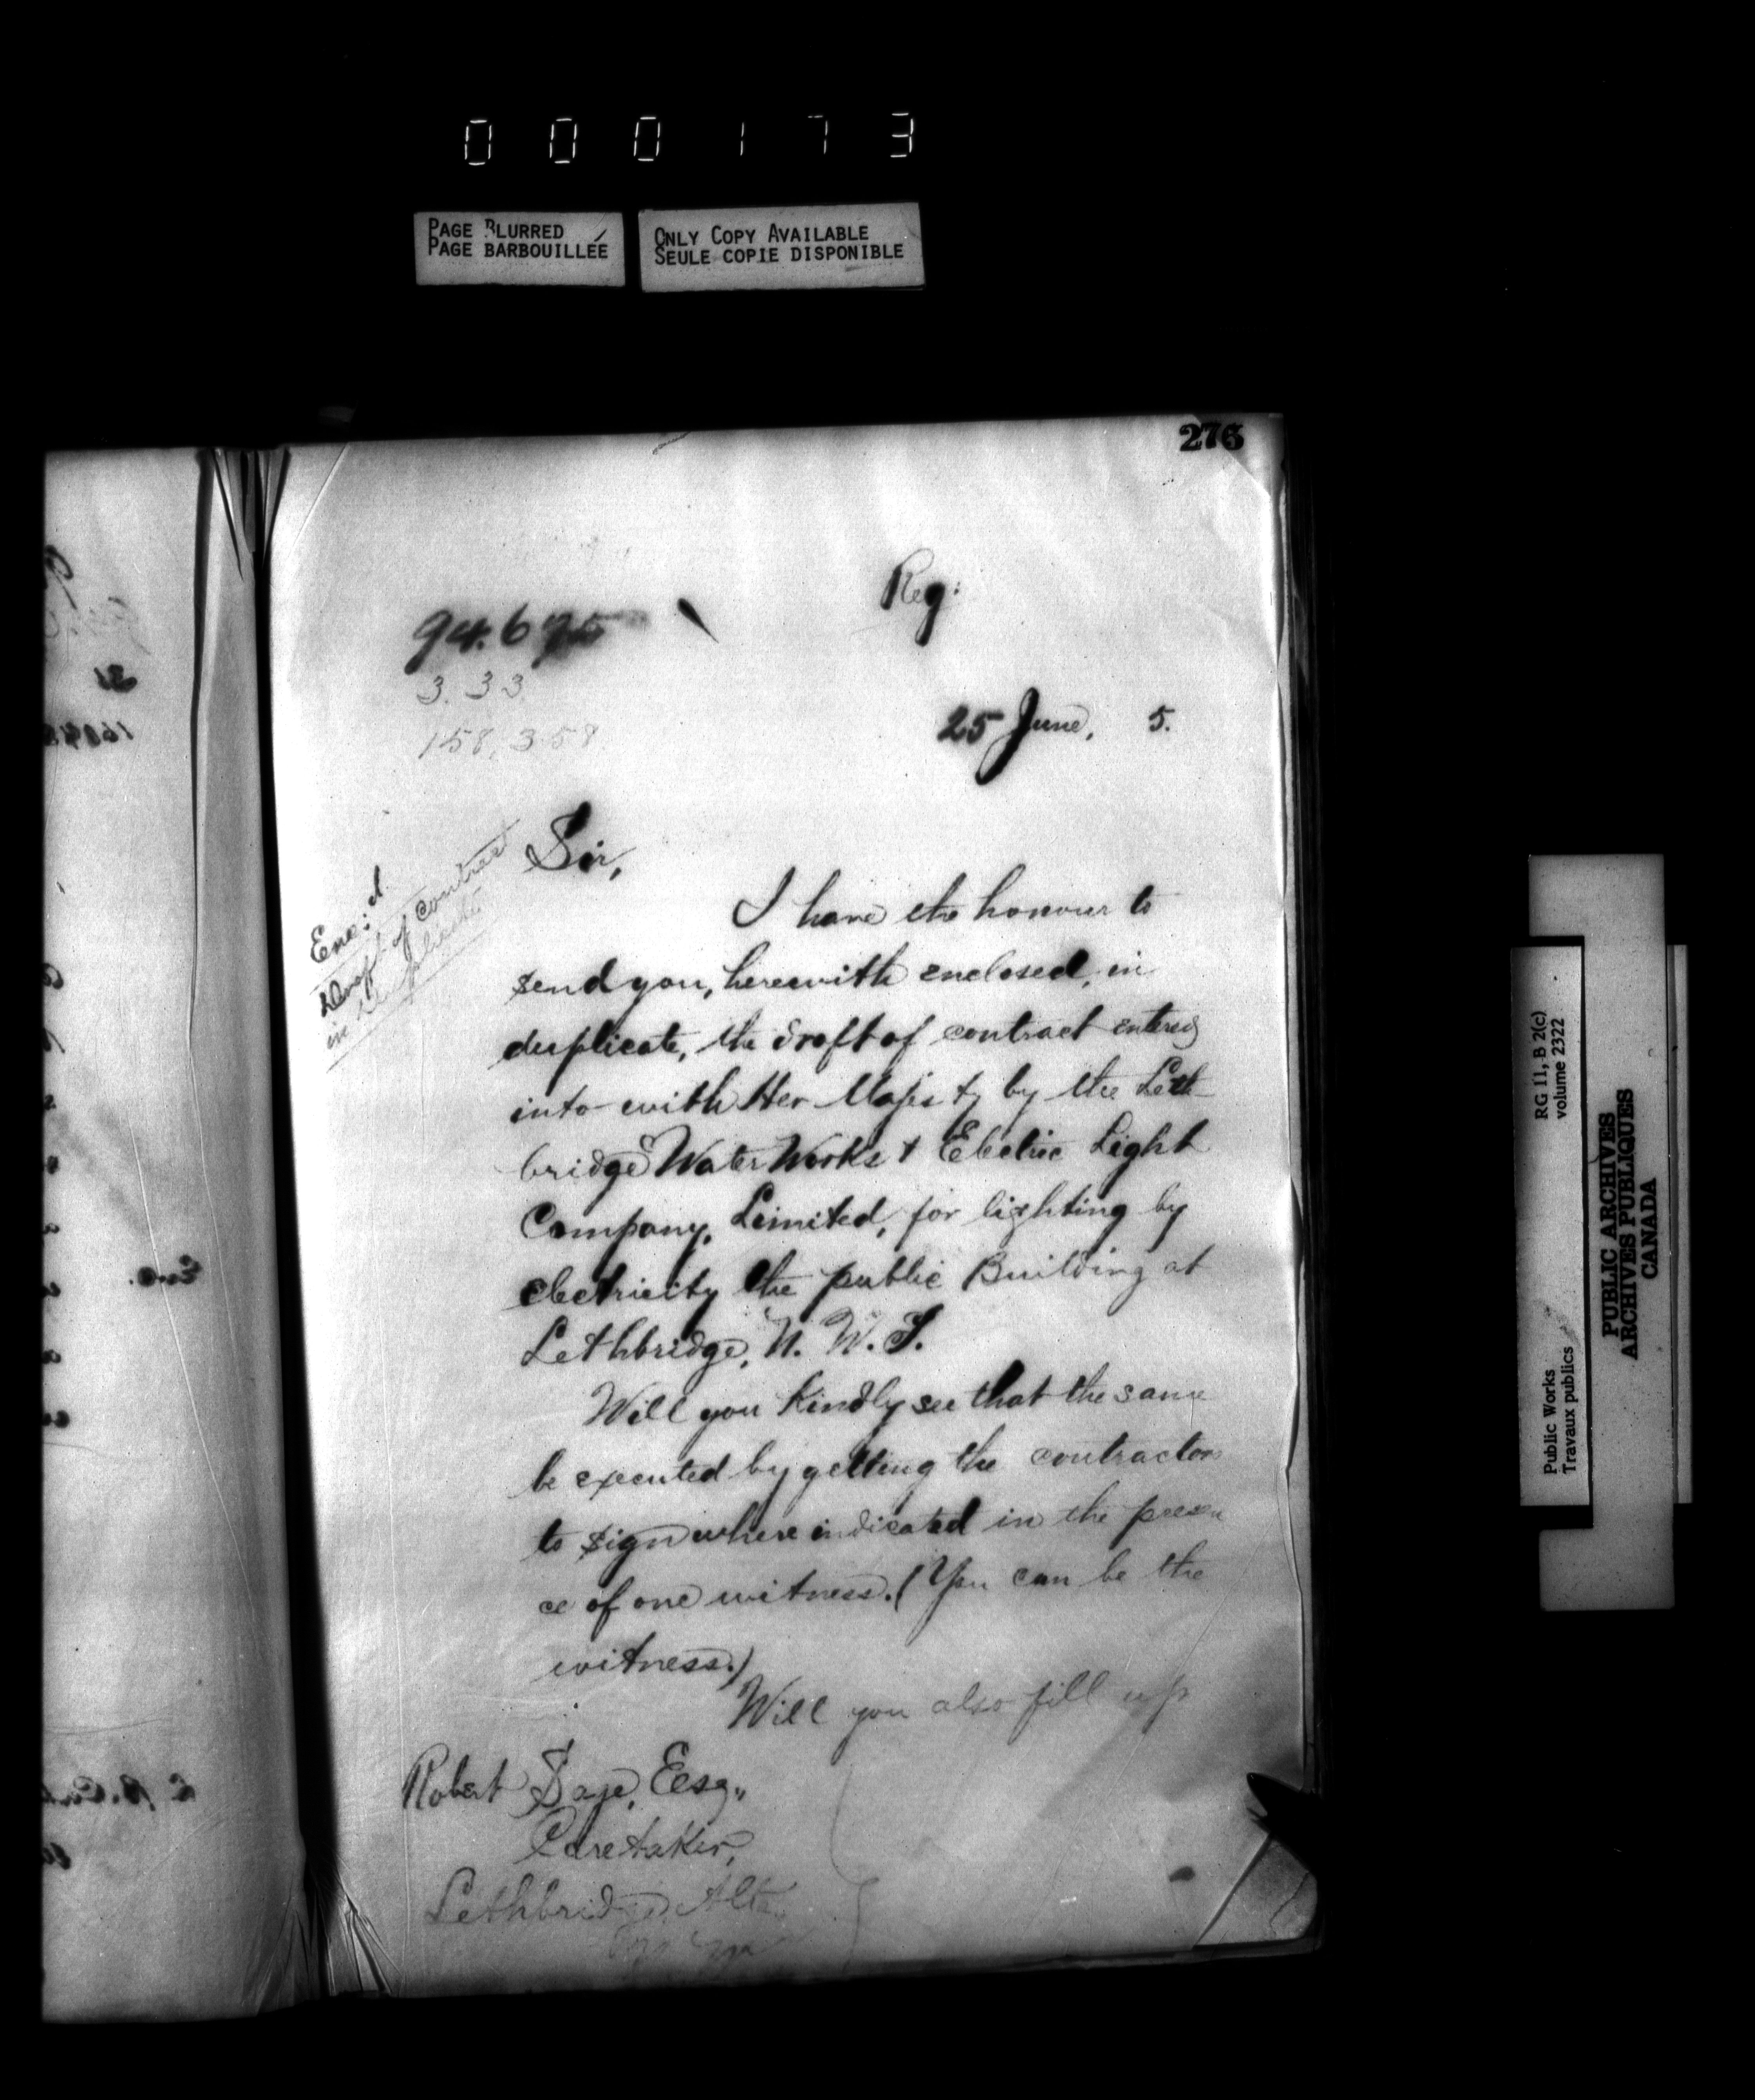 0 0 0 1 7 3
PAGE BLURRED
PAGE BARBOUILLÉE
ONLY COPY AVAILABLE
SEULE COPIE DISPONIBLE
276
Reg:
94.675
3.33
158,358
25 June, 5.
Enc: d
Draft of contract
in duplicate
Sir,
I have the honour to
send you, herewith enclosed, in
duplicate, the draft of contract entered
into with Her Majesty by the Leth-
bridge Water Works & Electric Light
Company, Limited, for lighting by
electricity the public Building at
Lethbridge, N. W. T.
Will you kindly see that the same
be executed by getting the contractor
to sign where indicated in the presen
ce of one witness. (You can be the
witness.)
Will you also fill up
Robert Esq.,
Caretaker,
Lethbridge, Alta.
RG 11, B 2(c)
volume 2322
Public Works
Travaux publics
PUBLIC ARCHIVES
ARCHIVES PUBLIQUES
CANADA